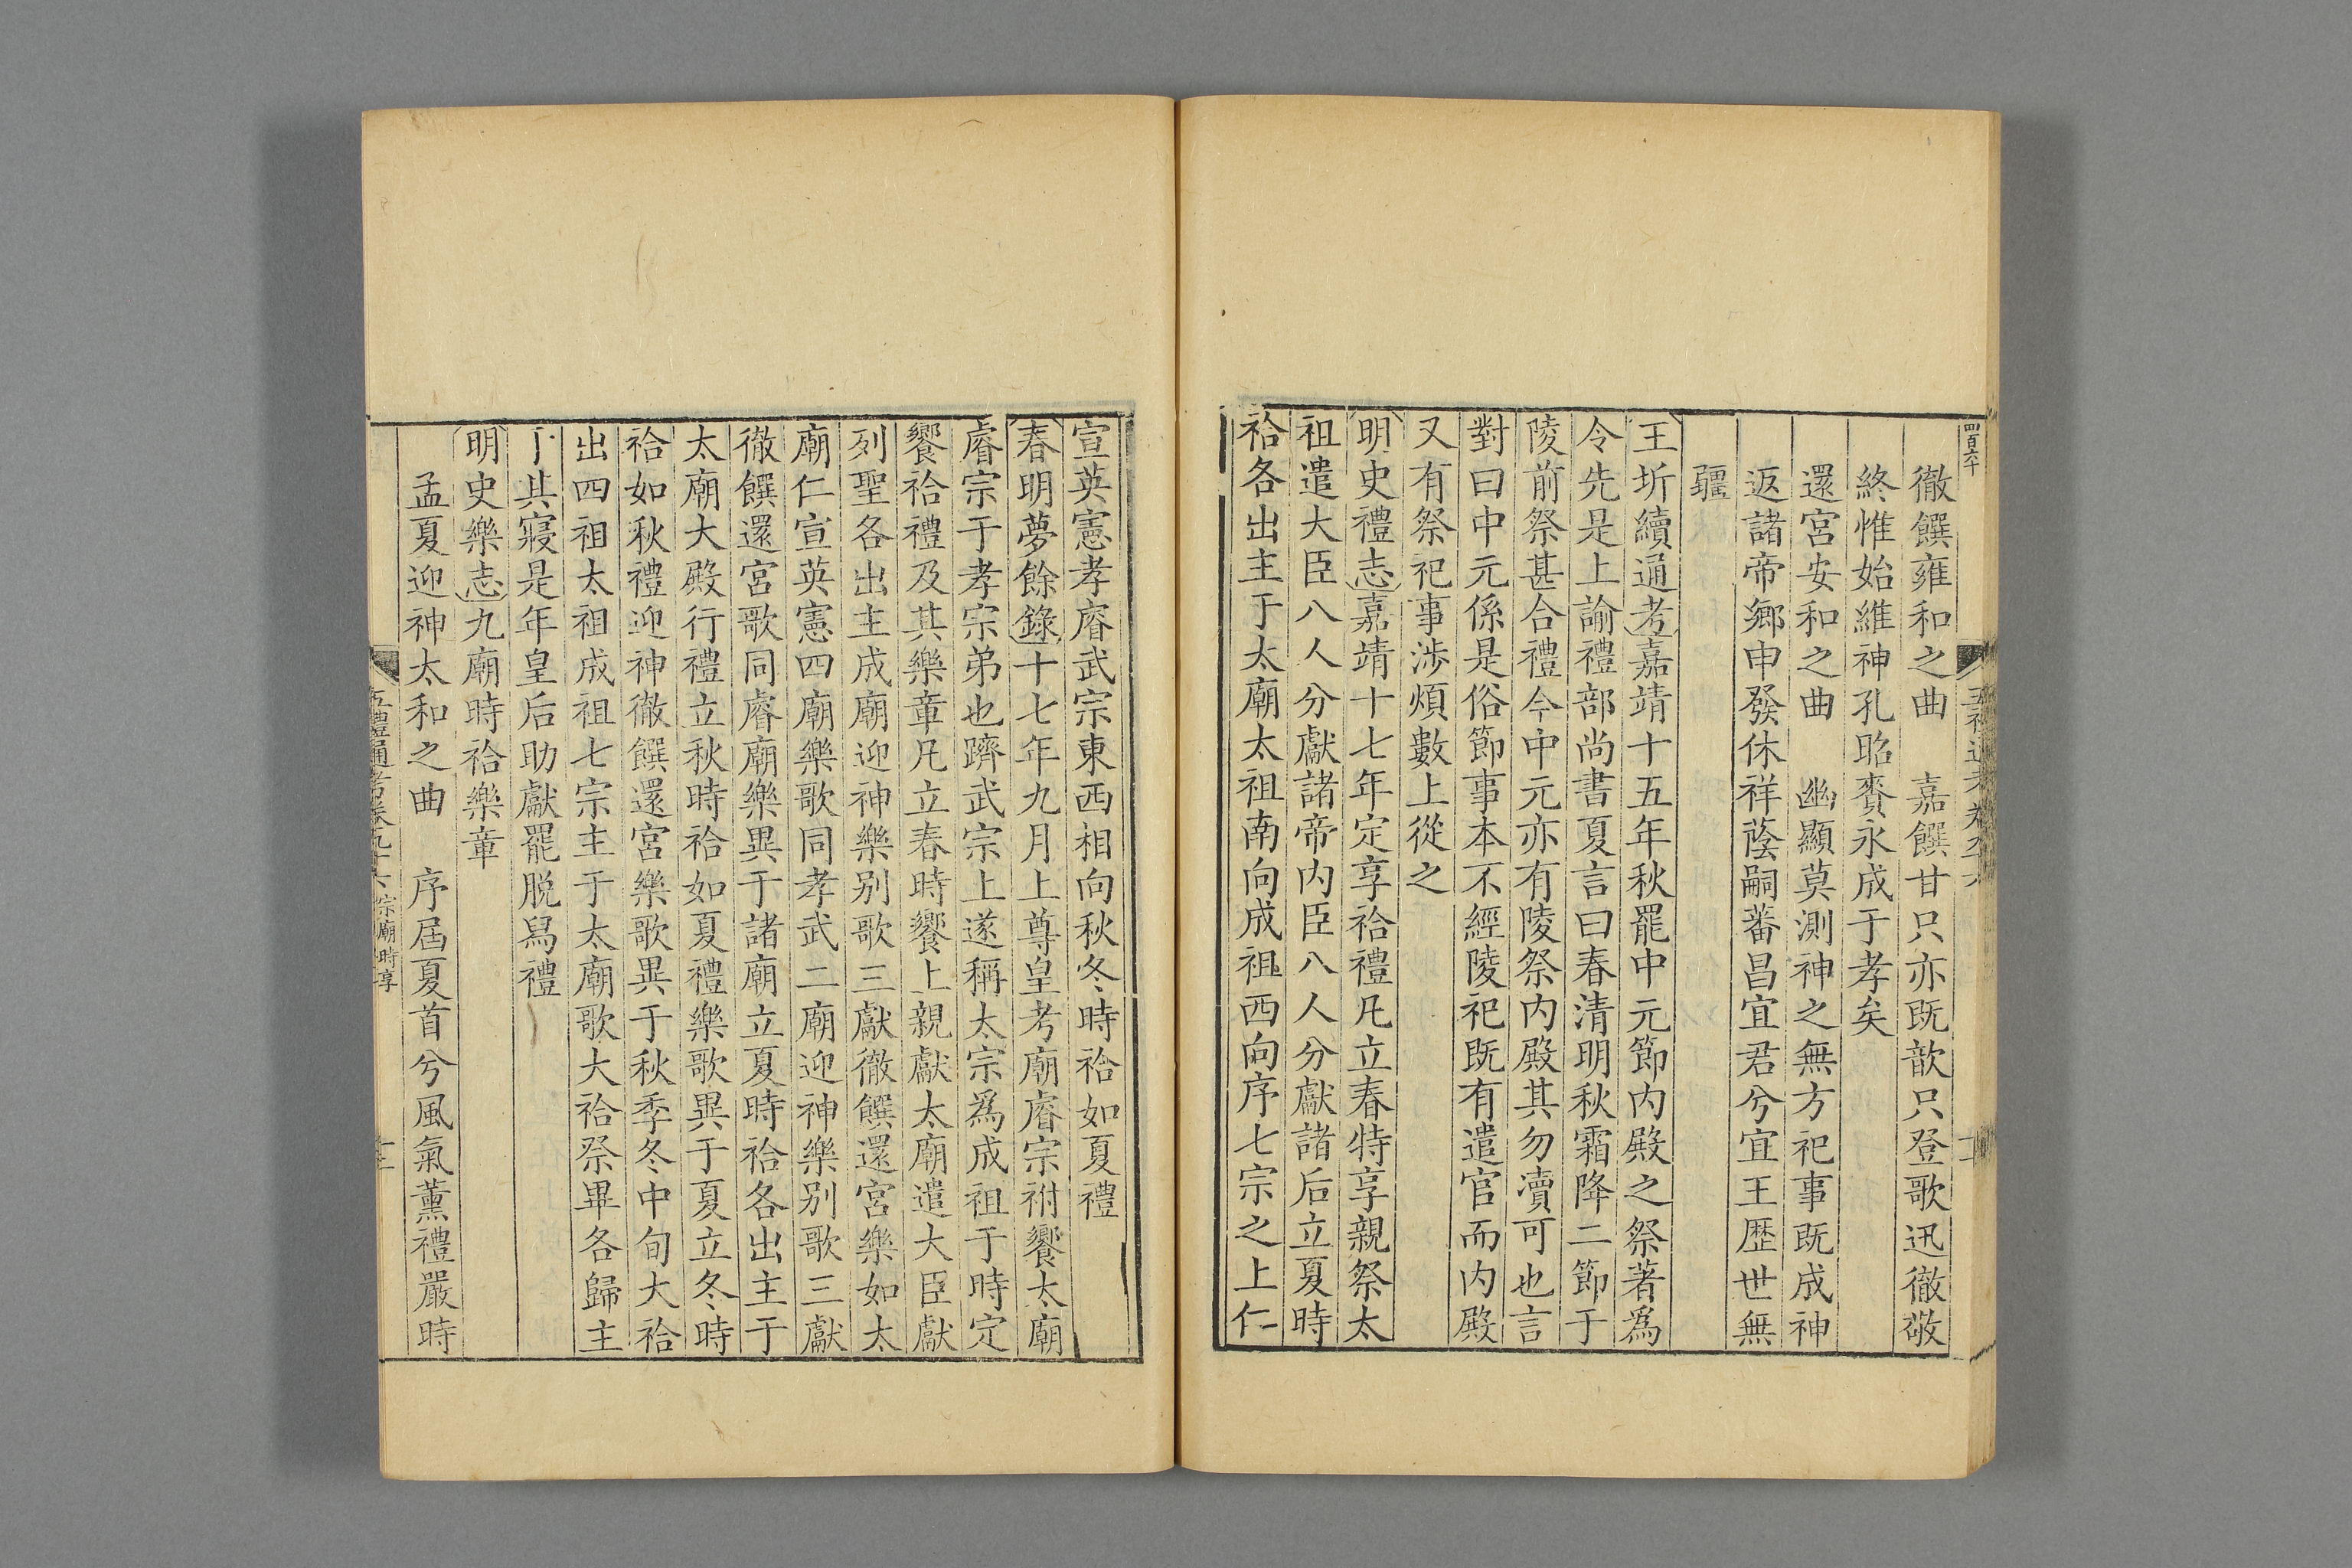 四百六十
徹饌雍和之曲　嘉饌甘只亦既歆只登歌迅徹敬
終惟始維神孔昭賚永成于孝矣
還宮安和之曲　幽顯莫測神之無方祀事既成神
返諸帝鄉申發休祥蔭嗣蕃昌宜君兮宜王歴世無
疆
王圻續通考嘉靖十五年秋罷中元節内殿之祭著爲
令先是上諭禮部尚書夏言曰春清明秋霜降二節于
陵前祭甚合禮今中元亦有陵祭内殿其勿瀆可也言
對曰中元係是俗節事本不經陵祀既有遣官而内殿
又有祭祀事涉煩數上從之
明史禮志嘉靖十七年定享祫禮凡立春特享親祭太
祖遣大臣八人分獻諸帝内臣八人分獻諸后立夏時
祫各出主于太廟太祖南向成祖西向序七宗之上仁
宣英憲孝睿武宗東西相向秋冬時祫如夏禮
春明夢餘錄十七年九月上尊皇考廟睿宗祔饗太廟
睿宗于孝宗弟也躋武宗上遂稱太宗爲成祖于時定
饗祫禮及其樂章凡立春時饗上親獻太廟遣大臣獻
列聖各出主成廟迎神樂别歌三獻徹饌還宮樂如太
廟仁宣英憲四廟樂歌同孝武二廟迎神樂别歌三獻
徹饌還宮歌同睿廟樂異于諸廟立夏時祫各出主于
太廟大殿行禮立秋時祫如夏禮樂歌異于夏立冬時
祫如秋禮迎神徹饌還宮樂歌異于秋季冬中旬大祫
出四祖太祖成祖七宗主于太廟歌大祫祭畢各歸主
于其寢是年皇后助獻罷脱舄禮
明史樂志九廟時祫樂章
孟夏迎神太和之曲　序屆夏首兮風氣薰禮嚴時
五禮通考卷九十六 宗廟時享